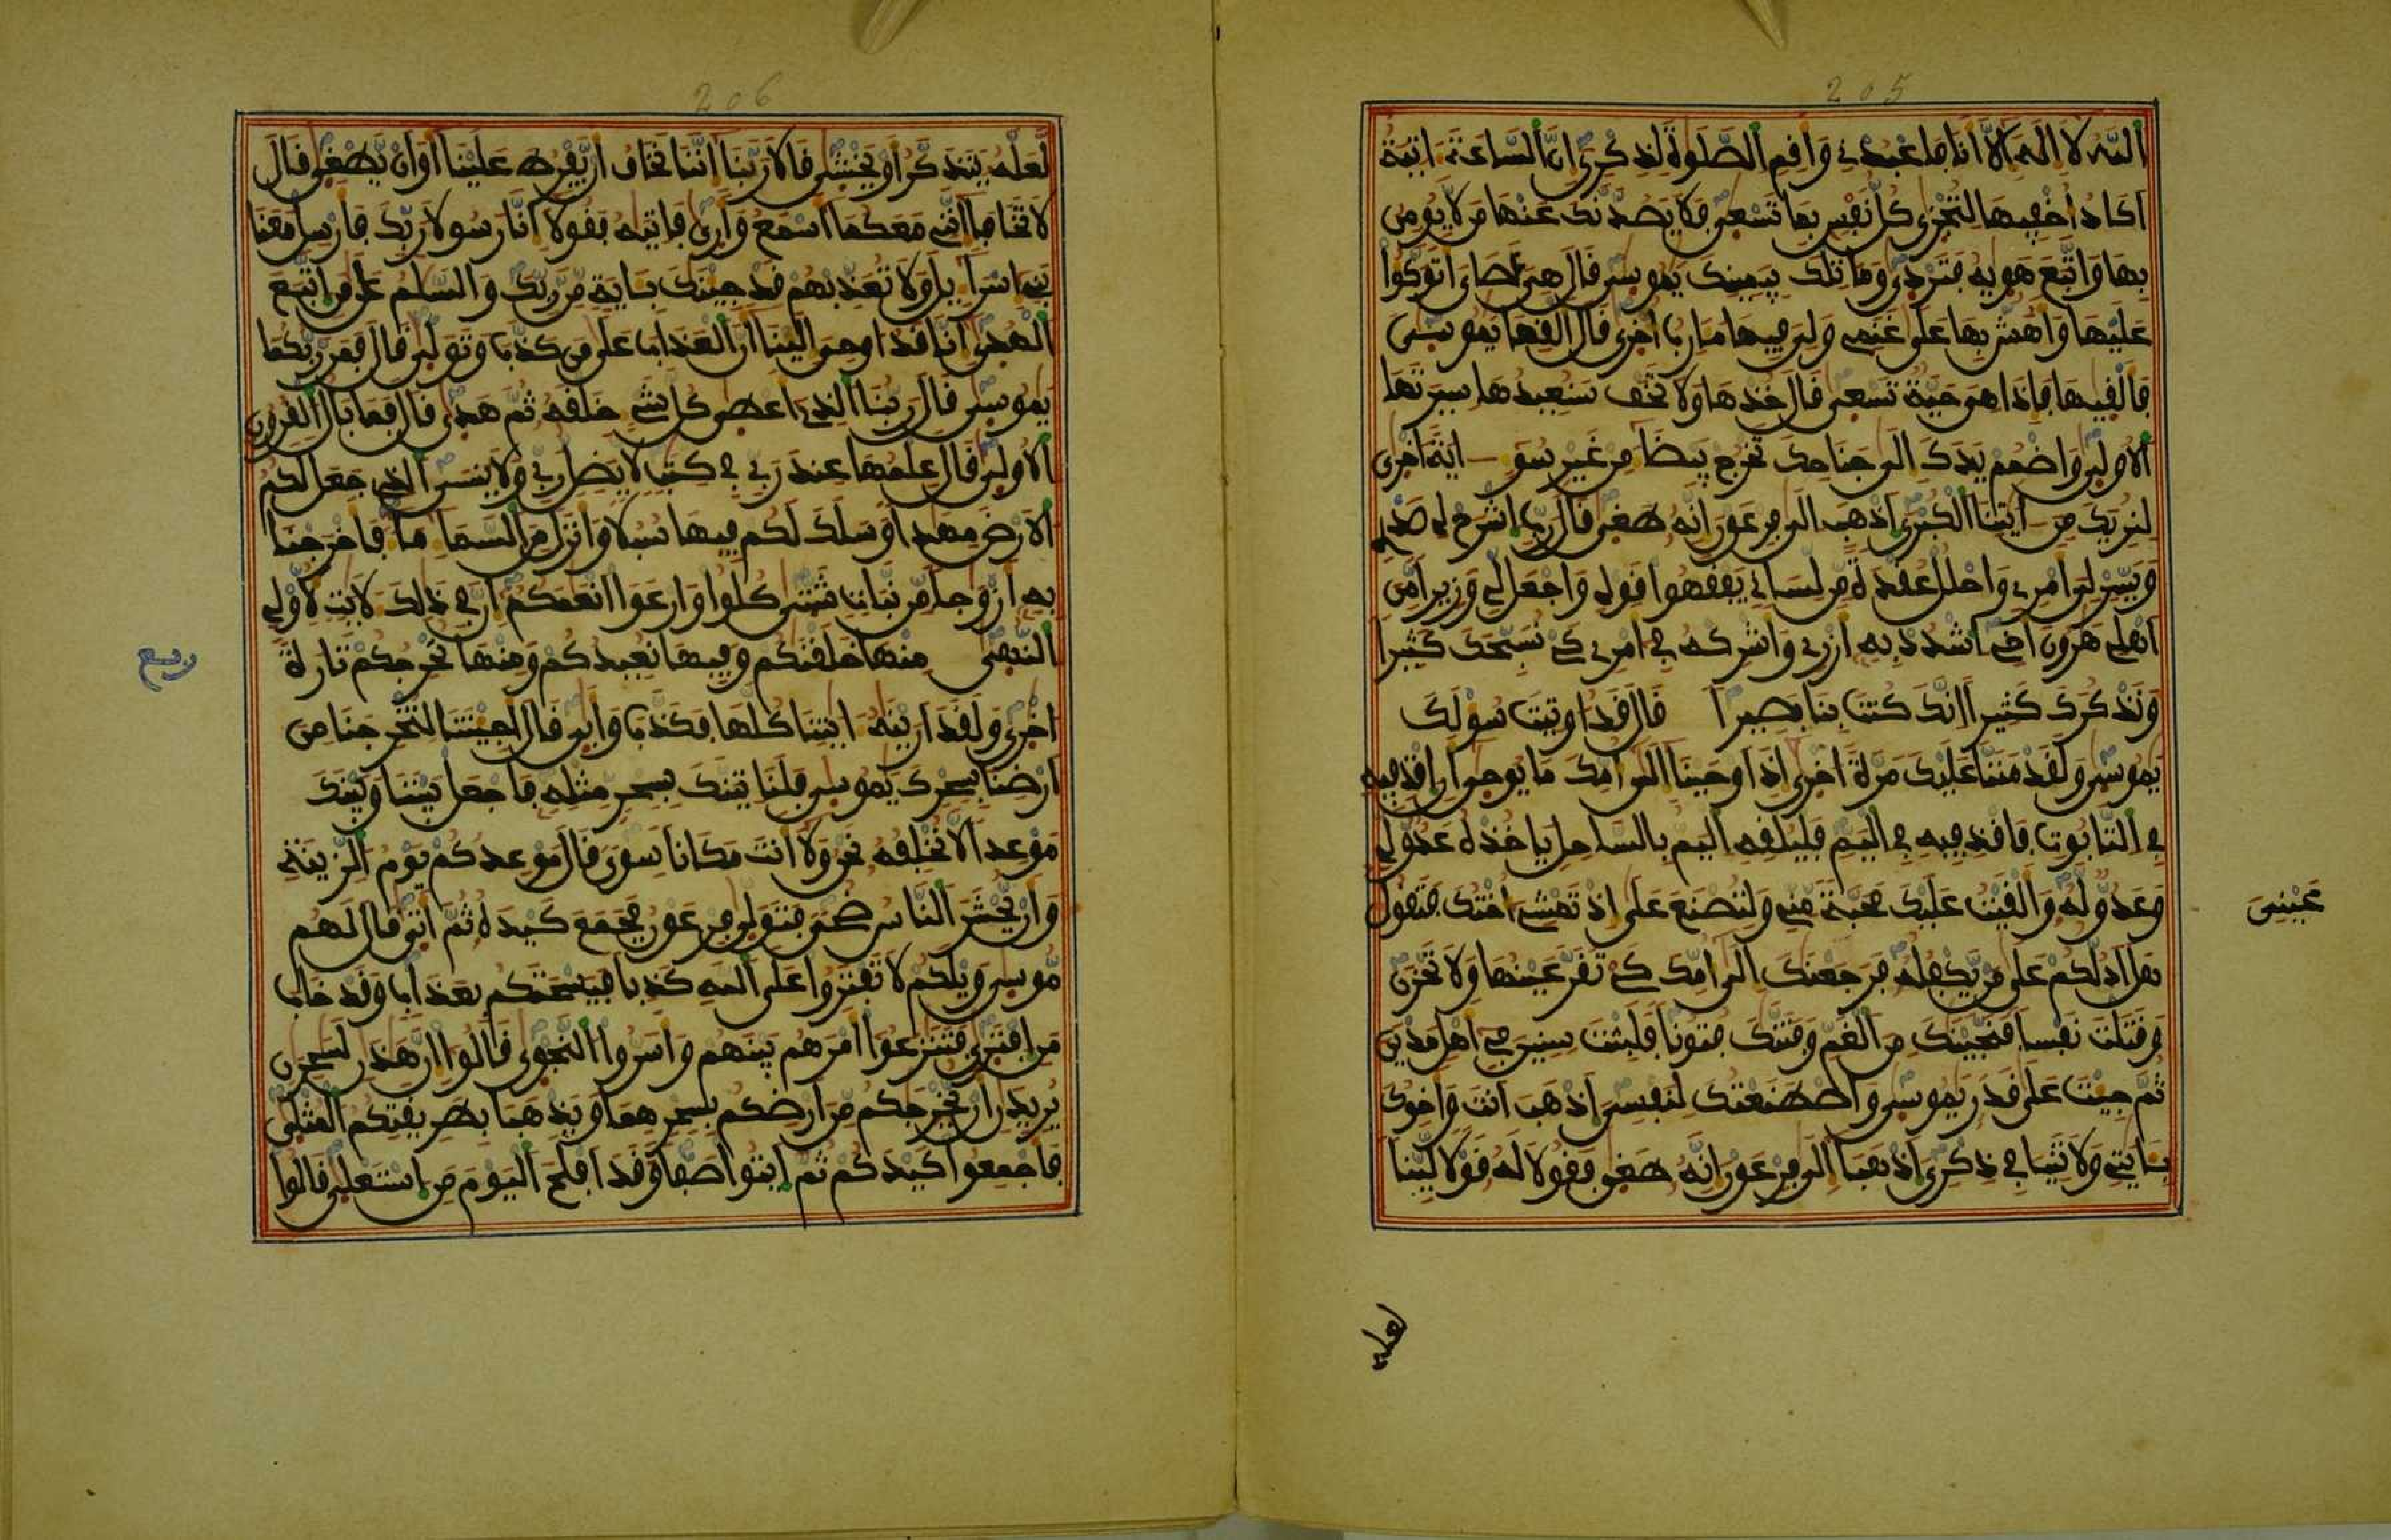 205
اللَّه لا اله الا انا فاعبدنے وافم الصلوة لذكرى ان الساعة اتية
اكاد اخفيها لتجزى كل نفس بما تسعى فلا يصدنك عنها من لا يومن
بها واتبع هويه فتردى وما تلك بيمينك يموسى فال هى عصاى اتوكوا
عليها واهش بها على غنمى ولى فيها مارب اخرى فال الفها يموسى
فالفيها فاذا هى حية تسعى فال خذها ولا تخف سنعيدها سيرتها
الاولى واضمم يدك الى جناحك تخرج بيضا من غير سو اية اخرى
لنريك من ايتنا الكبرى اذهب الى فرعون انه طغى فال رب اشرح لى صدرى
ويسر لى امرى واحلل عفدة من لسانے يففهوا فولى واجعل لى وزيرا من
اهلى هرون اخى اشدد به ازرى واشركه فى امرى كى نسبحك كثيرا
ونذكرك كثيرا انك كنت بنا بصيرا فال فد اوتيت سولك
يموسى ولفد مننا عليك مرة اخرى اذ اوحينا الى امك ما يوحى ان افذفيه
فى التابوت فافذفيه فى اليم فليلفه اليم بالساحل ياخذه عدو لى
وعدو له والفيت عليك محبة منى ولتصنع على اذ تمشى اختك فتفول
عينى
هل ادلكم على من يكفله فرجعنك الى امك كى تفر عينها ولا تحزن
وفتلت نفسا فنجينك من الغم وفتنك فتونا فلبثت سنين فى اهل مدين
ثم جيت على فدر يموسى واصطنعتك لنفسى اذهب انت واخوك
بايتى ولا تنيا فى ذكرى اذهبا الى فرعون انه طغى ففولا له فولا لينا
لعله
206
لعله يتذكر او يخشى فالا ربنا اننا نخاف ان يفرط علينا او ان يطغى فال
لا تخافا اننى معكما اسمع وارى فاتيه ففولا انا رسولا ربك فارسل معنا
بنى اسرايل ولا تعذبهم فد جينك باية من ربك والسلم على من اتبع
الهدى انا فد اوحى الينا ان العذاب على من كذب وتولى فال فمن ربكما
يموسى فال ربنا الذى اعطى كل شى خلفه ثم هدى فال فما بال الفرون
الاولى فال علمها عند ربى فى كتب لا يضل ربى ولا ينسى الذى جعل لكم
الارض مهدا وسلك لكم فيها سبلا وانزل من السما ما فاخرجنا
به ازوجا من نبات شتى كلوا وارعوا انعمكم ان فى ذلك لايت لاولى
النهى منها خلفنكم وفيها نعيدكم ومنها نخرجكم تارة
ربع
اخرى ولفد ارينه ايتنا كلها فكذب وابى فال اجيتنا لتخرجنا من
ارضنا بسحرك يموسى فلناتينك بسحر مثله فاجعل بيننا وبينك
موعدا لا نخلفه نحن ولا انت مكانا سوى فال موعدكم يوم الزينة
وان يحشر الناس ضحى فتولى فرعون فجمع كيده ثم اتى فال لهم
موسى ويلكم لا تفتروا على اللَّه كذبا فيسحتكم بعذاب وفد خاب
من افترى فتنزعوا امرهم بينهم واسروا النجوى فالوا ان هذن لسحرن
يريدن ان يخرجكم من ارضكم بسحرهما ويذهبا بطريفتكم المثلى
فاجمعوا كيدكم ثم ايتوا صفا وفد افلح اليوم من استعلى فالوا